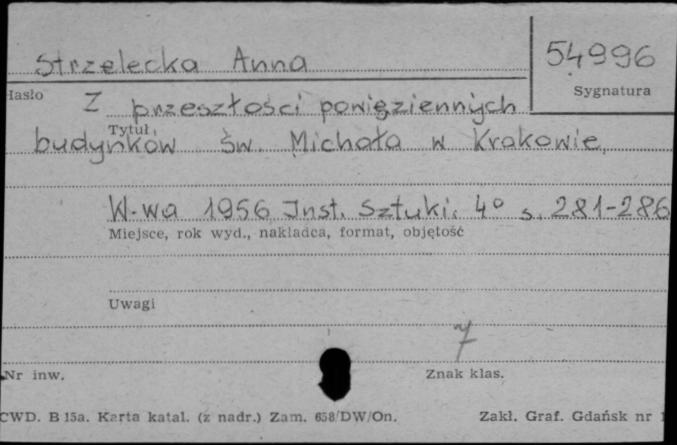 Strzelecka Anna
54996
Hasło
Sygnatura
Z przeszłości powięziennych
Tytuł
budynków św. Michała w Krakowie,
W-wa 1956 Inst. Sztuki. 4° s. 281-286
Miejsce, rok wyd., nakładca, format, objętość
Uwagi
7
Nr inw.
Znak klas.
CWD. B 15a. Karta katal. (z nadr.) Zam. 658/DW/On.
Zakł. Graf. Gdańsk nr 1